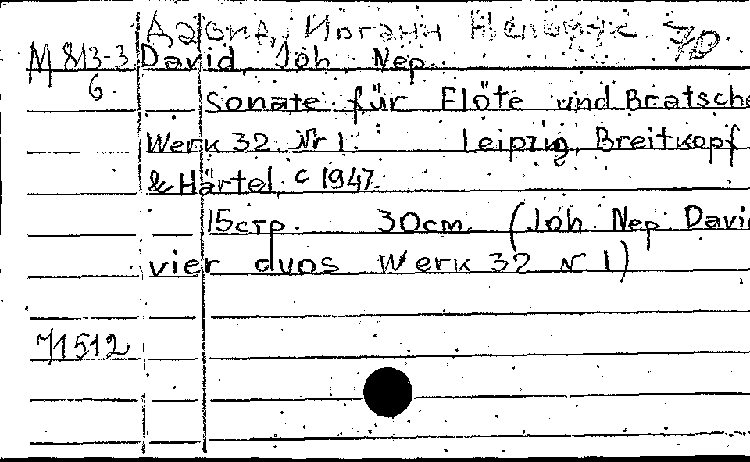 Давид, Иоганн Непомук 70
М 813-3 David, Joh. Nep.
6.
Sonate für Flöte und Bratsche
Werk 32. Nr 1. Leipzig, Breitkopf
& Härtel, c 1947.
15стр. 30cm. (Joh. Nep. David
vier duos Werk 32 N 1)
71512